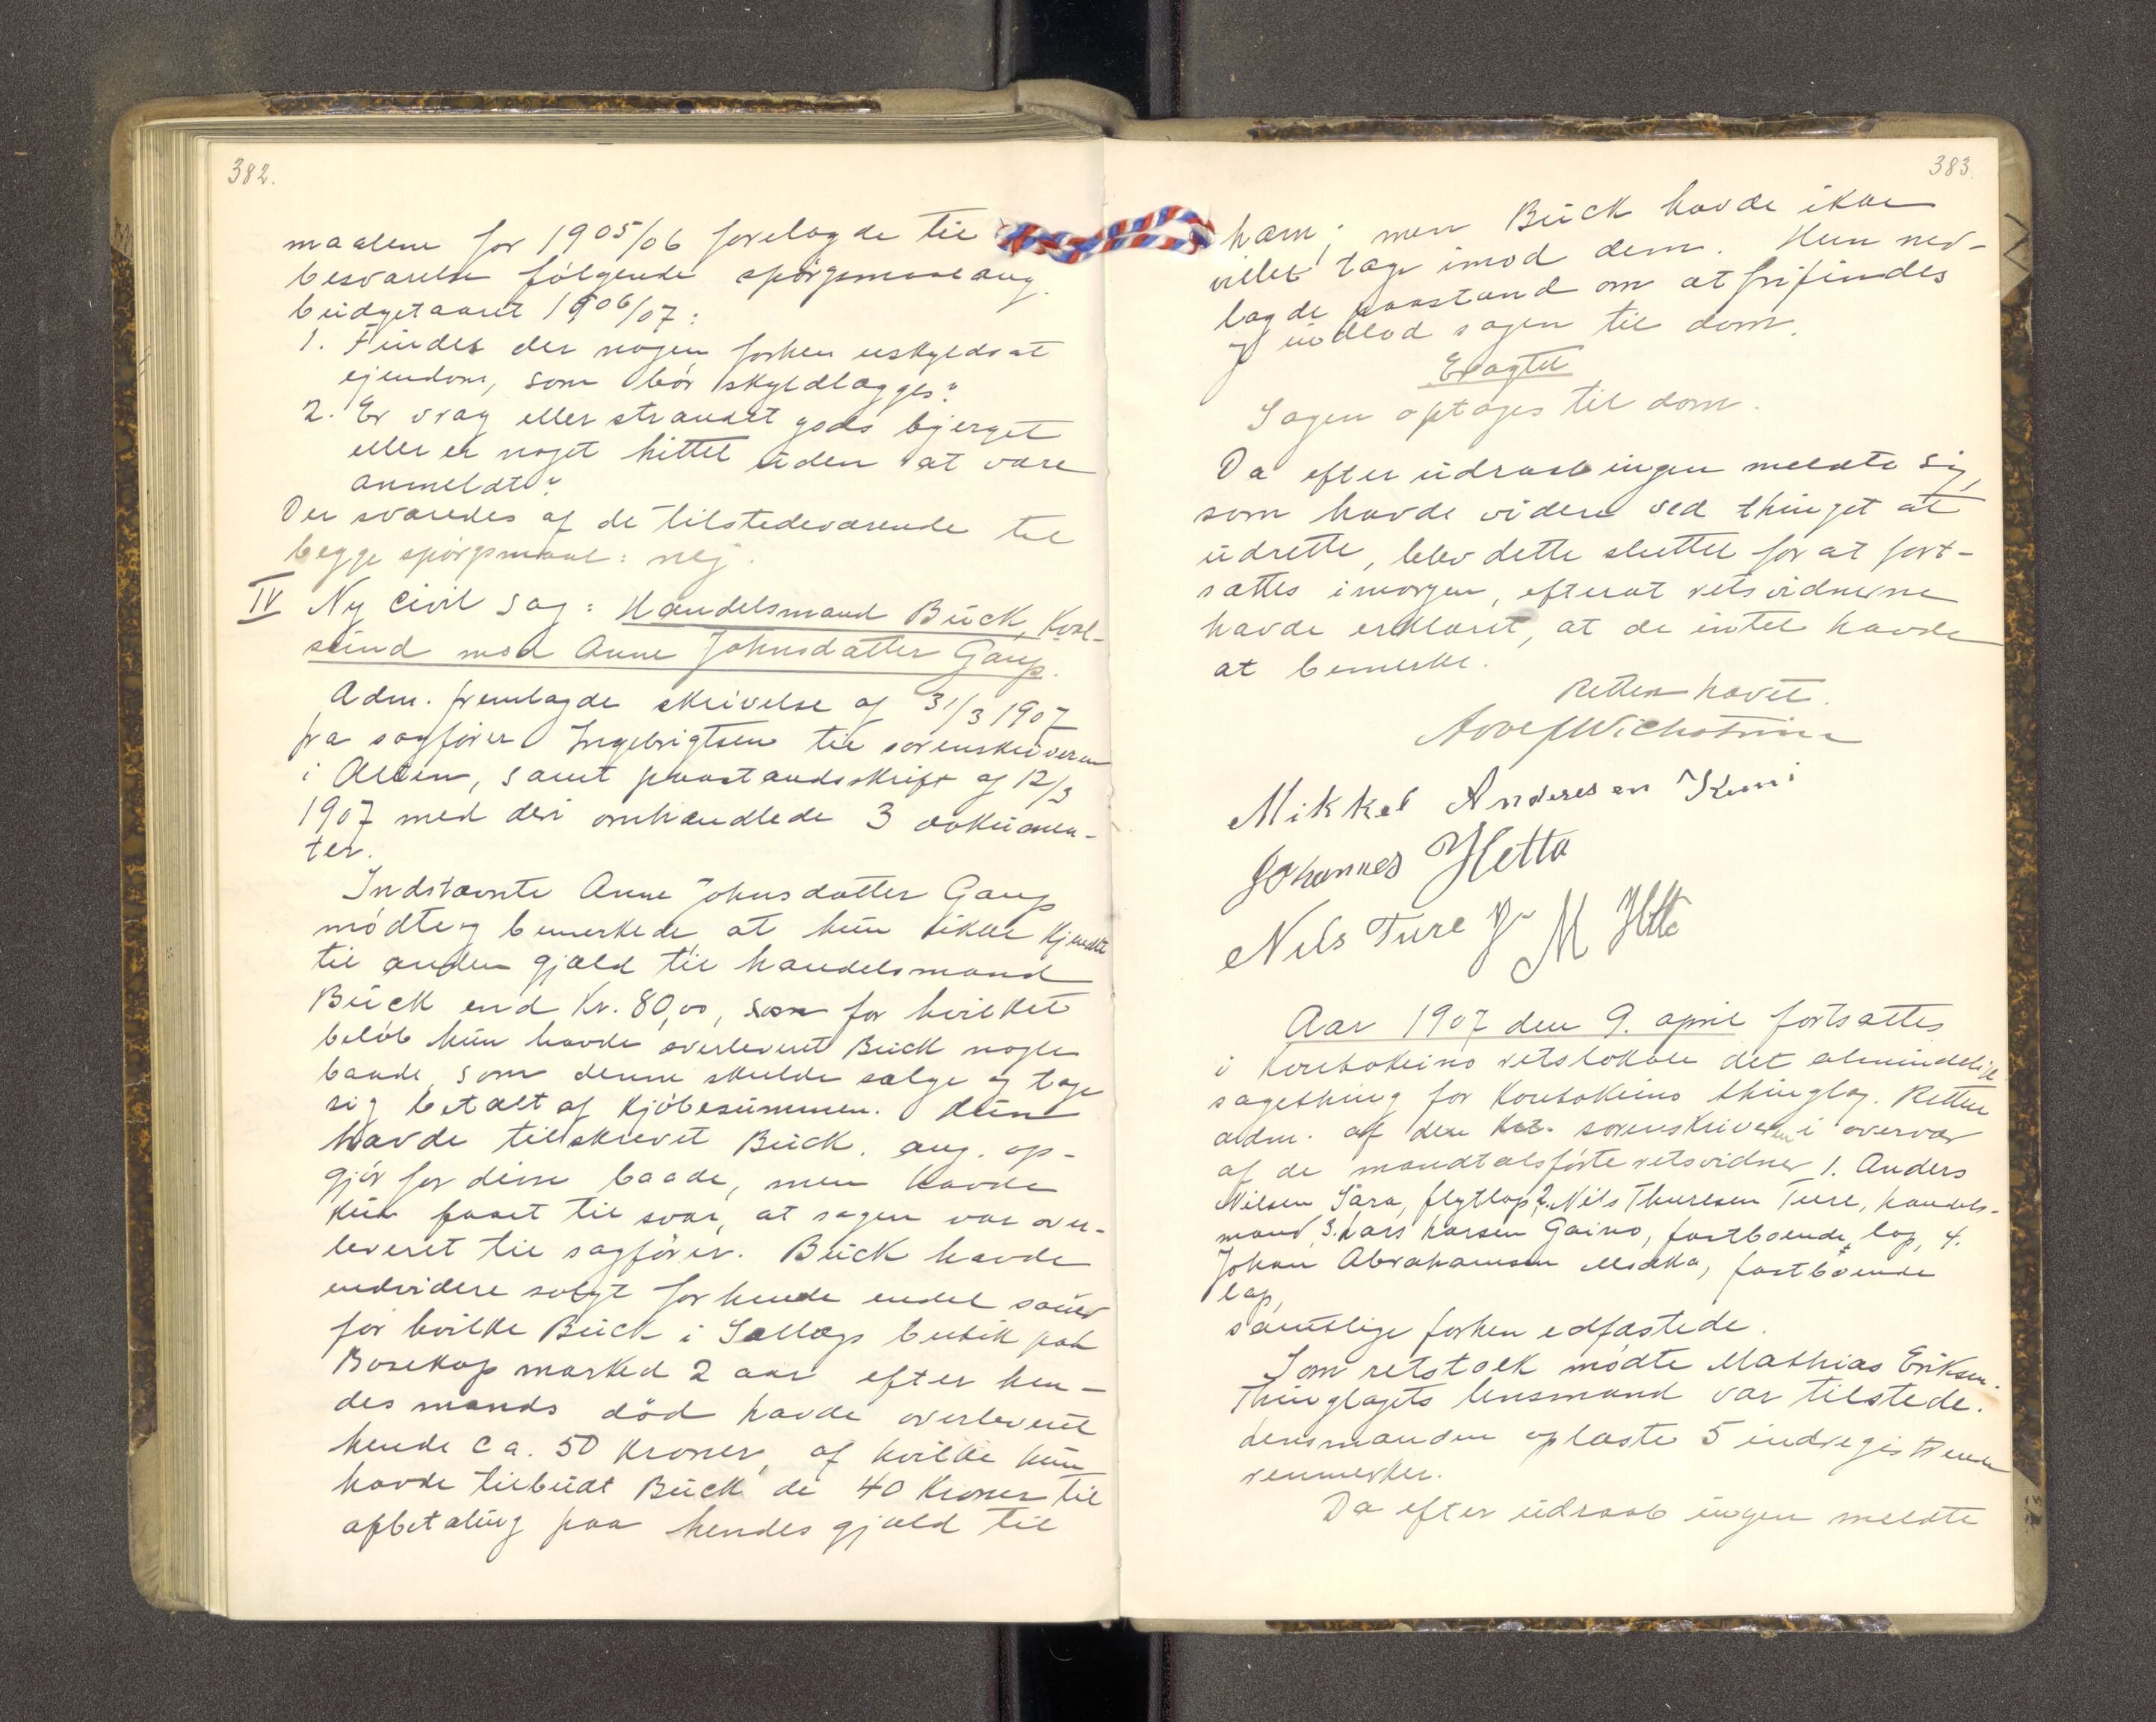 382.
maalene for 1905/06 forelagde til
besvarelse følgende spørgsmaal ang.
budgetaaret 1906/07:
1. Findes der nogen forhen uskyldsat
ejendom, som bør skyldlægges?
2. Er vrag eller strandet gods bjerget
eller er noget hittet uden at være
anmeldt?
Der svaredes af de tilstedeværende til
begge spørgsmaal: nej.
IV Ny civil sag: Handelsmand Buck, Kval-
sund mod Anne Johnsdatter Gaup.
Adm. fremlagde skrivelse af 31/3 1907
fra sagfører Ingebrigtsen til sorenskriveren
i Alten, samt paastandsskrift af 12/3
1907 med deri omhandlede 3 dokumen-
ter.
Indstævnte Anne Johnsdatter Gaup
mødte og bemerkede, at hun ikke kjendte
til anden gjæld til handelsmand
Buck end kr. 80,00, som for hvilket
beløb hun havde overleveret Buck nogle
baade, som denne skulde sælge og tage
sig betalt af kjøbesummen. Hun
havde tilskrevet Buck. ang. op-
gjør for disse baade, men havde
kun faaet til svar, at sagen var over-
leveret til sagfører. Buck havde
endvidere solgt for hende endel sauer
for hvilke Buck i Sællegs butik paa
Bosekop marked 2 aar efter hen-
des mands død havde overleveret
hende ca. 50 kroner, af hvilke hun
havde tilbudt Buck de 40 kroner til
afbetaling paa hendes gjæld til
383.
ham; men Buck havde ikke
villet tage imod dem. Hun ned-
lagde paastand om at frifindes
og indlod sagen til dom.
Eragtet
Sagen optages til dom.
Da efter udraab ingen meldte sig,
som havde videre ved thinget at
udrette, blev dette sluttet for at fort-
sættes imorgen, efterat retsvidnerne
havde erklæret, at de intet havde
at bemerke.
Retten hævet.
Mikkel Andersen
Johannes Hetta
Nils Ture M Hetta
Aar 1907 den 9. april fortsattes
i Koutokeino retslokale det almindelige
sagething for Koutokeino thinglag. Retten
adm. af den kst. sorenskriveren i overvær
af de mandtalsførte retsvidner 1. Anders
Nilsen Sara, flytlap, 2. Nils Thuresen Ture, handels-
mand, 3. Lars Larsen Gaino, fastboende lap, 4.
Johan Abrahamsen Mækka, fastboende
lap,
samtlige forhen edfæstede.
Som retstolk mødte Mathias Eriksen.
Thinglagets lensmand var tilstede.
Lensmanden oplæste 5 indregistrerede
renmerker.
Da efter udraab ingen meldte